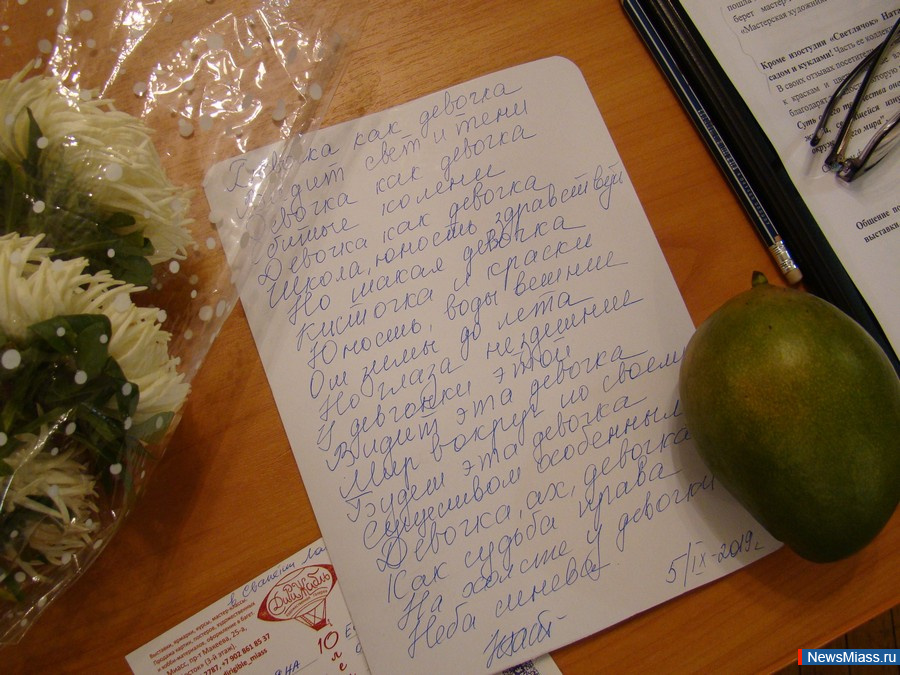 Девочка как девочка
Видит свет и тени
Девочка как девочка
битые колени
Девочка как девочка
Школа, юность здравствуй
Но такая девочка
Кисточка и краски
Юность, воды вешние
От зимы до лета
Но глаза нездешние
У девчонки этой
Видит эта девочка
Мир вокруг по своему
Будет эта девочка
Существом особенным
Девочка, ах, девочка
Как судьба права
На холсте у девочки
Неба синева
5/IX-2019г
в
ДиРиЖаБлЬ
10
Выставки, ярмарки, курсы, мастер-классы
Продажа картин, постеров, художественных
и хобби-материалов, оформление в багет
Миасс, пр-т Макеева, 25-а,
(3-й этаж).
7787, +7 902 861 85 37
dirigible_miass
берет мастер
«Мастерская художни
Кроме изостудии «Светлячок» Ната
садом и куклами! Часть ее коллек
В своих отзывах посетители
к краскам и
благодарят
Суть
мира"
Общение по
выставки
NewsMiass.ru